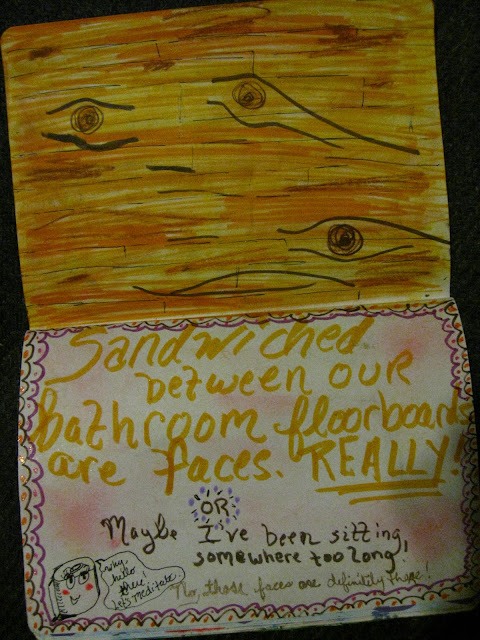 Sandwiched
between our
bathroom floorboards
are faces. REALLY!
OR
Maybe I've been sitting
somewhere too long,
why
hello
there!
Let's meditate.
No, those faces are definitely there!